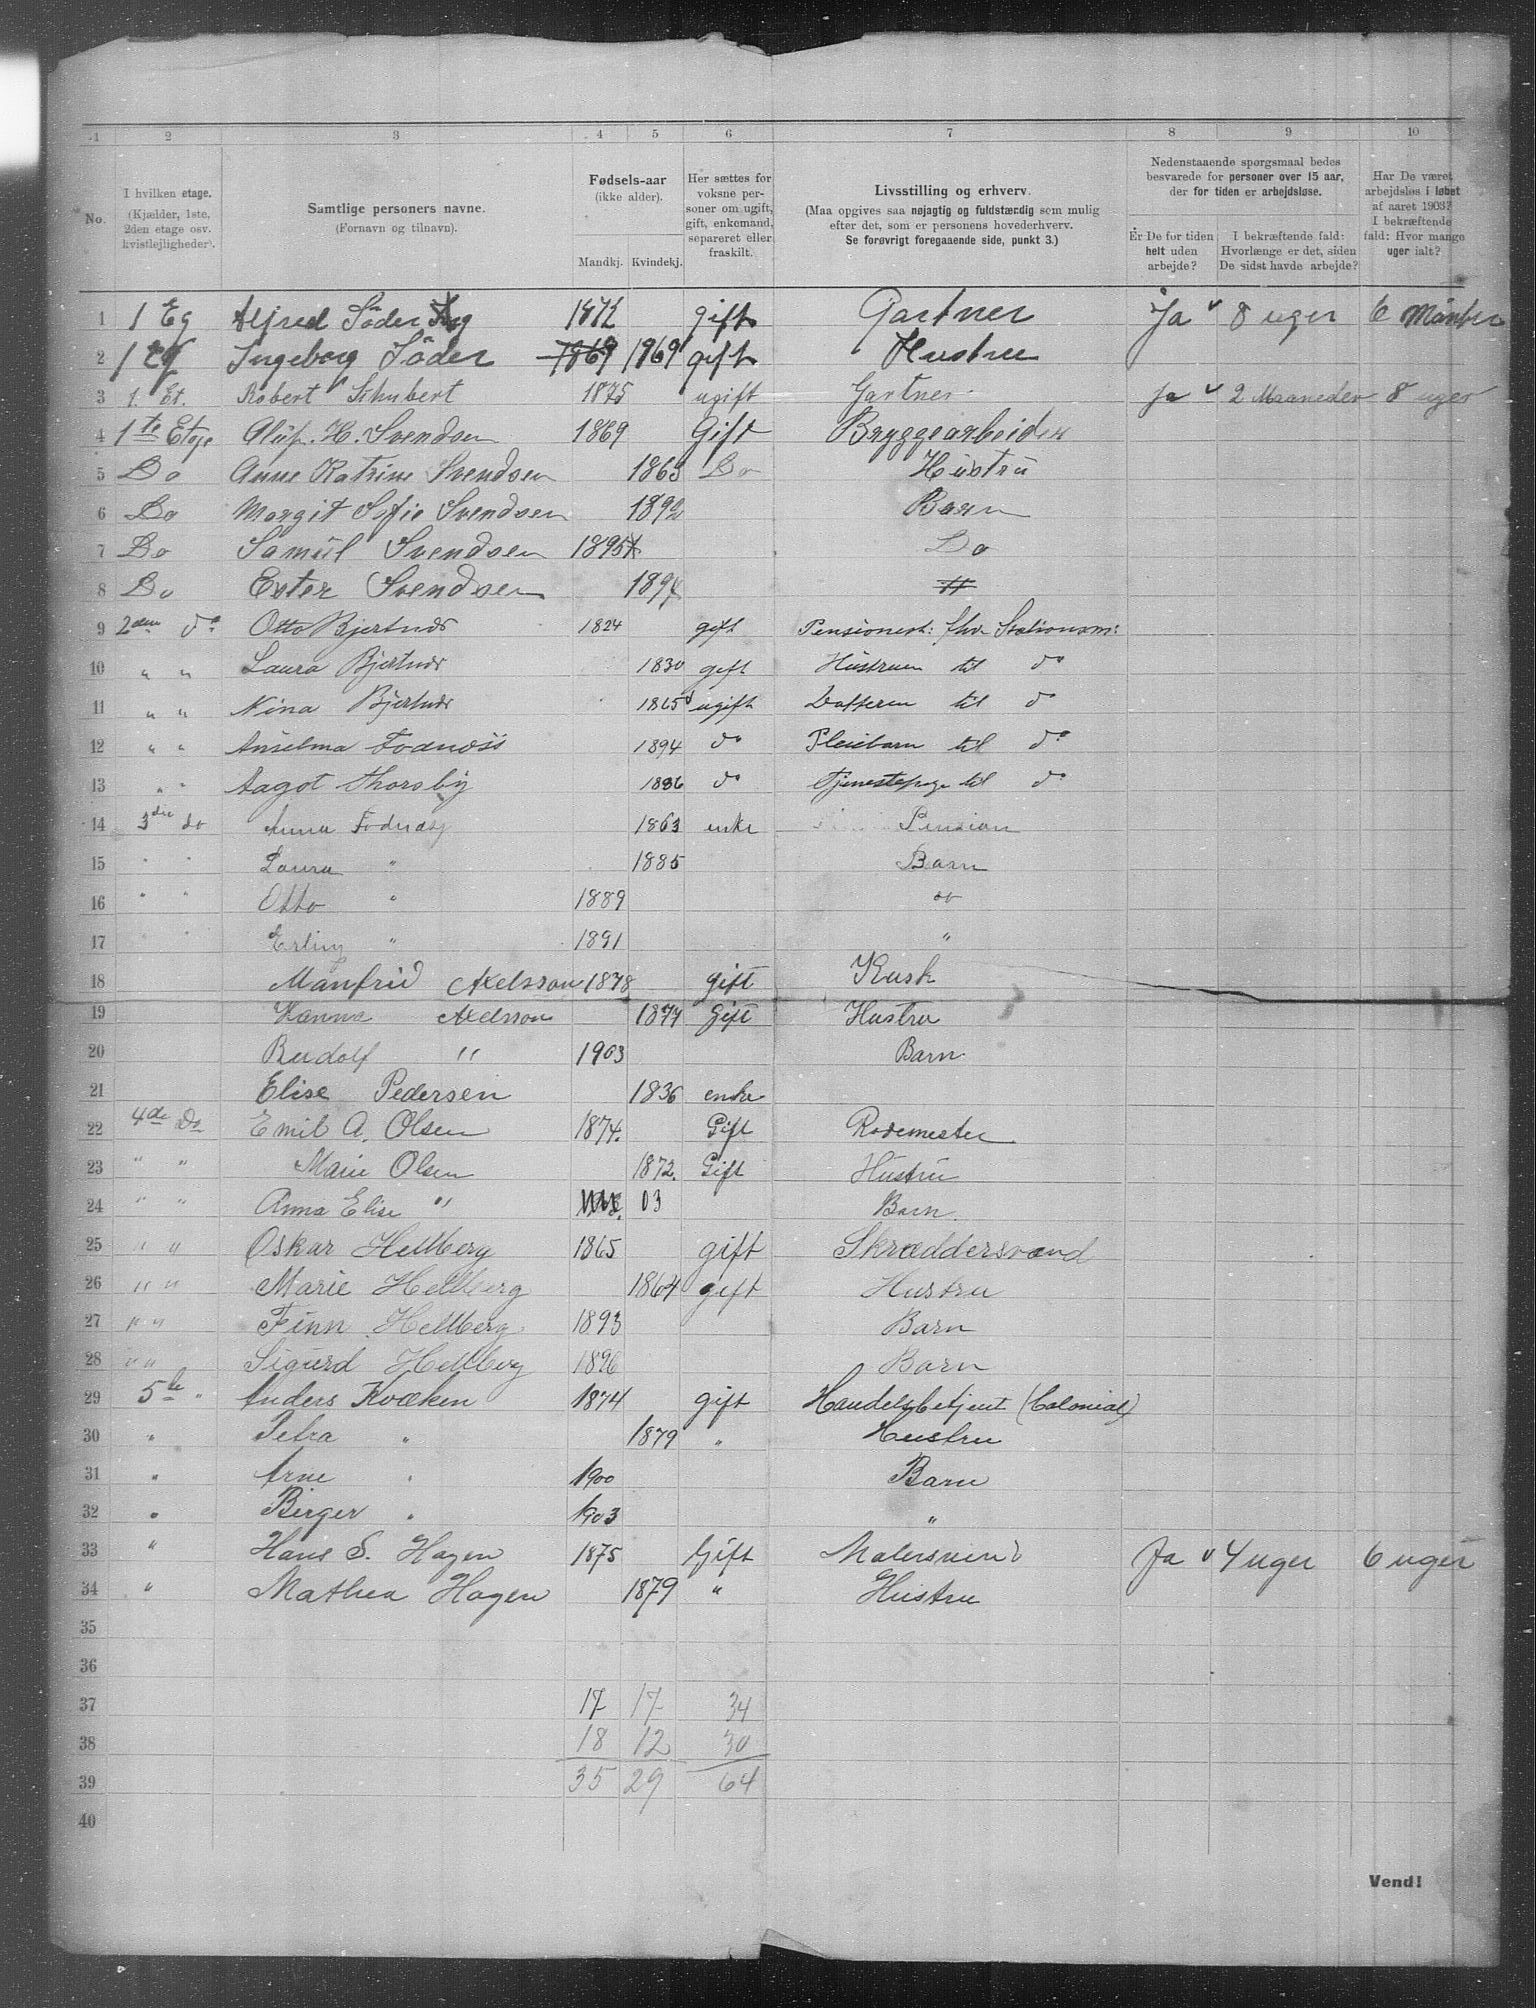 1 2 3 4 5 6 7 8 9 10
No.
I hvilken etage. (Kjælder, 1ste, 2den etage osv. kvistlejligheder).
Samtlige personers navne. (Fornavn og tilnavn).
Fødsels-aar (ikke alder). Mandkj. Kvindekj.
Her sættes for voksne personer om ugift, gift, enkemand, separeret eller fraskilt.
Livsstilling og erhverv. (Maa opgives saa nøjagtig og fuldstændig som mulig efter det, som er personens hovederhverv. Se forøvrigt foregaaende side, punkt 3.)
Nedenstaaende spørgsmaal bedes besvarede for personer over 15 aar, der for tiden er arbejdsløse.
Er De for tiden helt uden arbejde?
I bekræftende fald: Hvorlænge er det, siden De sidst havde arbejde?
Har De været arbejdsløs i løbet af aaret 1903? I bekræftende fald: Hvor mange uger ialt?
1 1 Eg Alfred Söder 1872 gift Gartner Ja 8 uger 6 Månter
2 1 Eg Ingeborg Söder 1869 1969 gift Hustru
3 1. Et. Robert Schubert 1875 ugift Gartner Ja 2 Maaneder 8 uger
4 1te Etage Oluf. H. Svendsen 1869 Gift Bryggearbeider
5 Do Anne Katrine Svendsen 1863 Do Hustru
6 Do Margit Sofie Svendsen 1892 Barn
7 Do Samuel Svendsen 1895 Do
8 Do Ester Svendsen 1897 "
9 2den do Otto Bjertnæs 1824 gift Pensionist: fhv. Stationsm:
10 " " Laura Bjertnæs 1830 gift Hustruen til do
11 " " Nina Bjertnæs 1865 ugift Datteren til do
12 " " Anselma Fodnæss 1894 do Pleiebarn til do
13 " " Aagot Thorsby 1886 do Tjenestepige til do
14 3die do Anna Fodnæs 1863 enke Pension
15 " " Laura " 1885 Barn
16 " " Otto " 1889 do
17 " " Erling " 1891 "
18 Manfrid Axelsson 1878 gift Kusk
19 Hanna Axelsson 1877 Gift Hustru
20 Rudolf " 1903 Barn
21 Elise Pedersen 1836 enke
22 4de Do Emil A. Olsen 1874. Gift Rodemester
23 " " Marie Olsen 1872. Gift Hustru
24 " " Anna Elise " 03 Barn.
25 " " Oskar Hellberg 1865 gift Skræddersvend
26 " " Marie Hellberg 1864 gift Hustru
27 " " Finn Hellberg 1893 Barn
28 " " Sigurd Hellberg 1896 Barn
29 5te " Anders Kvæken 1874 gift Handelsbetjent (Colonial)
30 " Petra " 1879 " Hustru
31 " Arne " 1900 Barn
32 " Birger " 1903 "
33 " Hans S. Hagen 1875 Gift Malersvend Ja 4 uger 6 uger
34 " Mathea Hagen 1879 " Hustru
35
36
37 17 17 34
38 18 12 30
39 35 29 64
40
Vend!